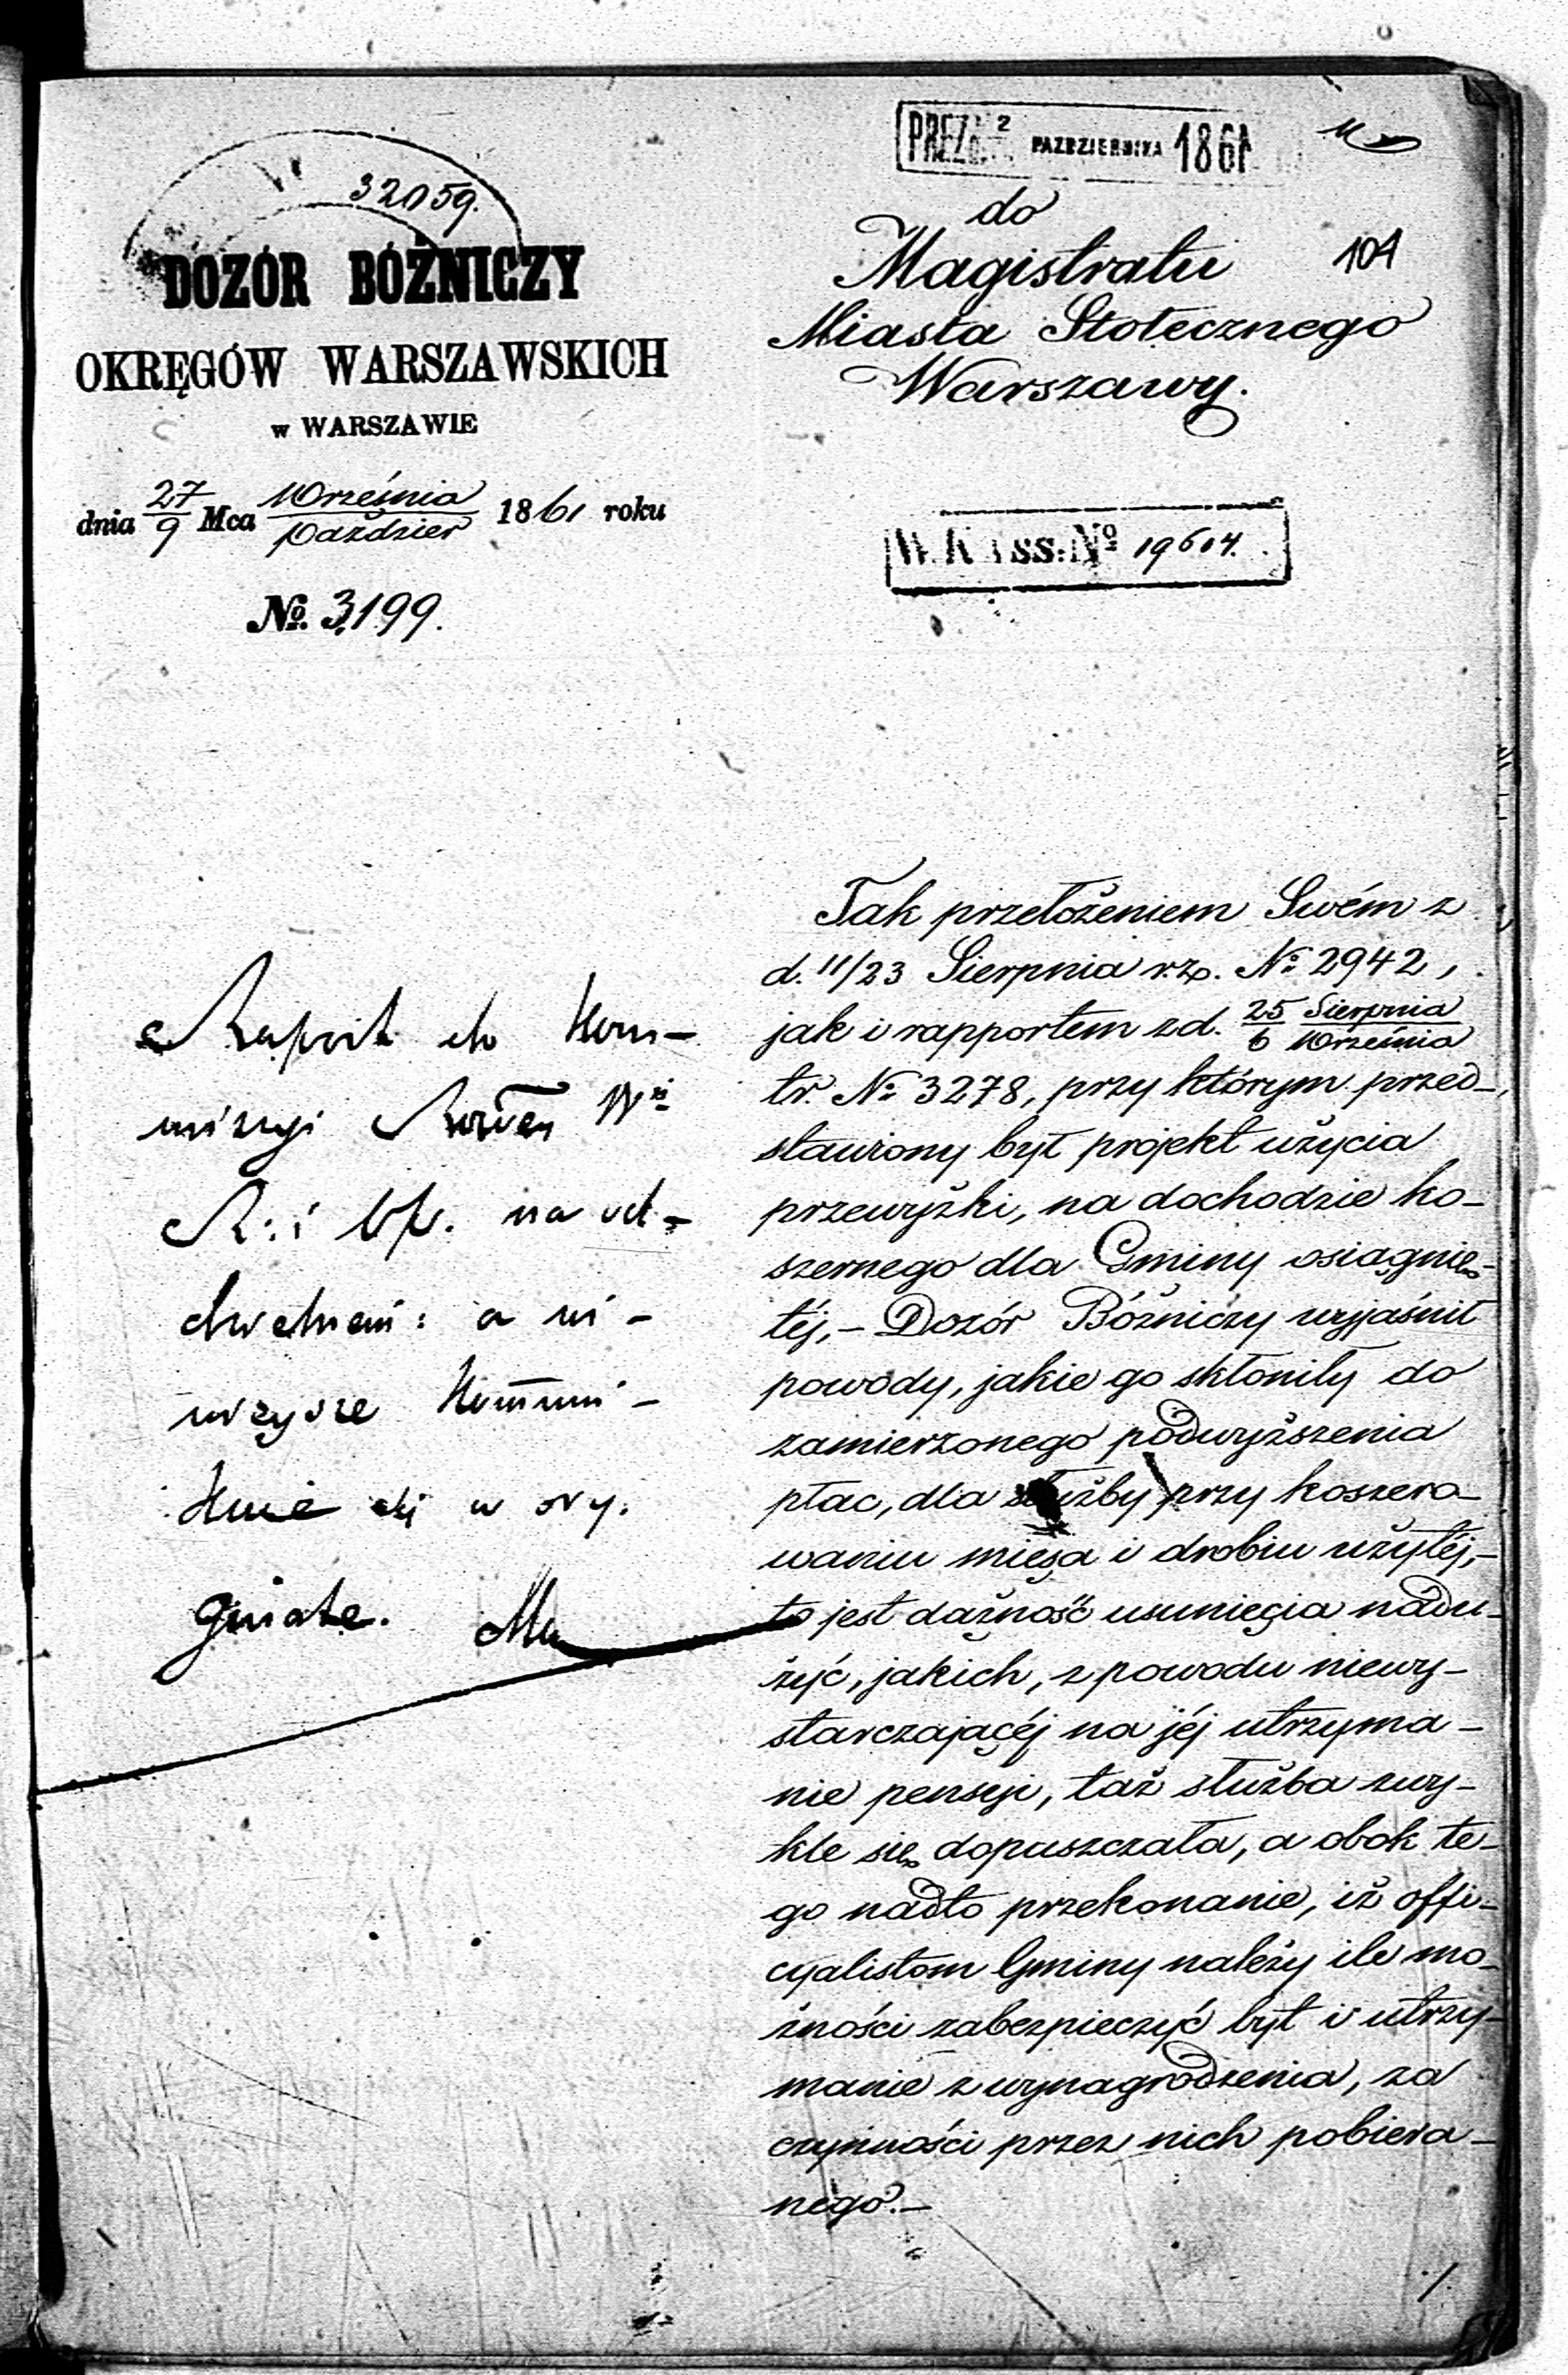 32059.
DOZÓR BÓŻNICZY
OKRĘGÓW WARSZAWSKICH
w WARSZAWIE
dnia 27/9 Mca Września/Paździer 1861 roku
No. 3,199.
PREZ: 2 PAZDZIERNIKA 1861
104
do
Magistratu
Miasta Stołecznego
Warszawy.
No 19604.
Raport do Kom-
missyi
R: i na od-
Tak przełożeniem Swém z
d. 11/23 Sierpnia r.z. No 2942,
jak i rapportem z d. 25/6 Sierpnia/Września
tr. No 3278, przy którym przed-
stawiony był projekt użycia
przewyżki, na dochodzie ko-
szernego dla Gminy osiągnię-
téj, – Dozór Bóżniczy wyjaśnił
powody, jakie go skłoniły do
zamierzonego podwyższenia
płac, dla służby przy koszero-
waniu mięsa i drobiu użytéj, –
to jest dążność usunięcia nadu-
żyć, jakich, z powodu niewy-
starczającéj na jéj utrzyma-
nie pensyi, taż służba zwy-
kle się dopuszczała, a obok te-
go nadto przekonanie, iż offi-
cyalistom Gminy należy ile mo-
żności zabezpieczyć byt i utrzy-
manie z wynagrodzenia, za
czynności przez nich pobiera-
nego. –